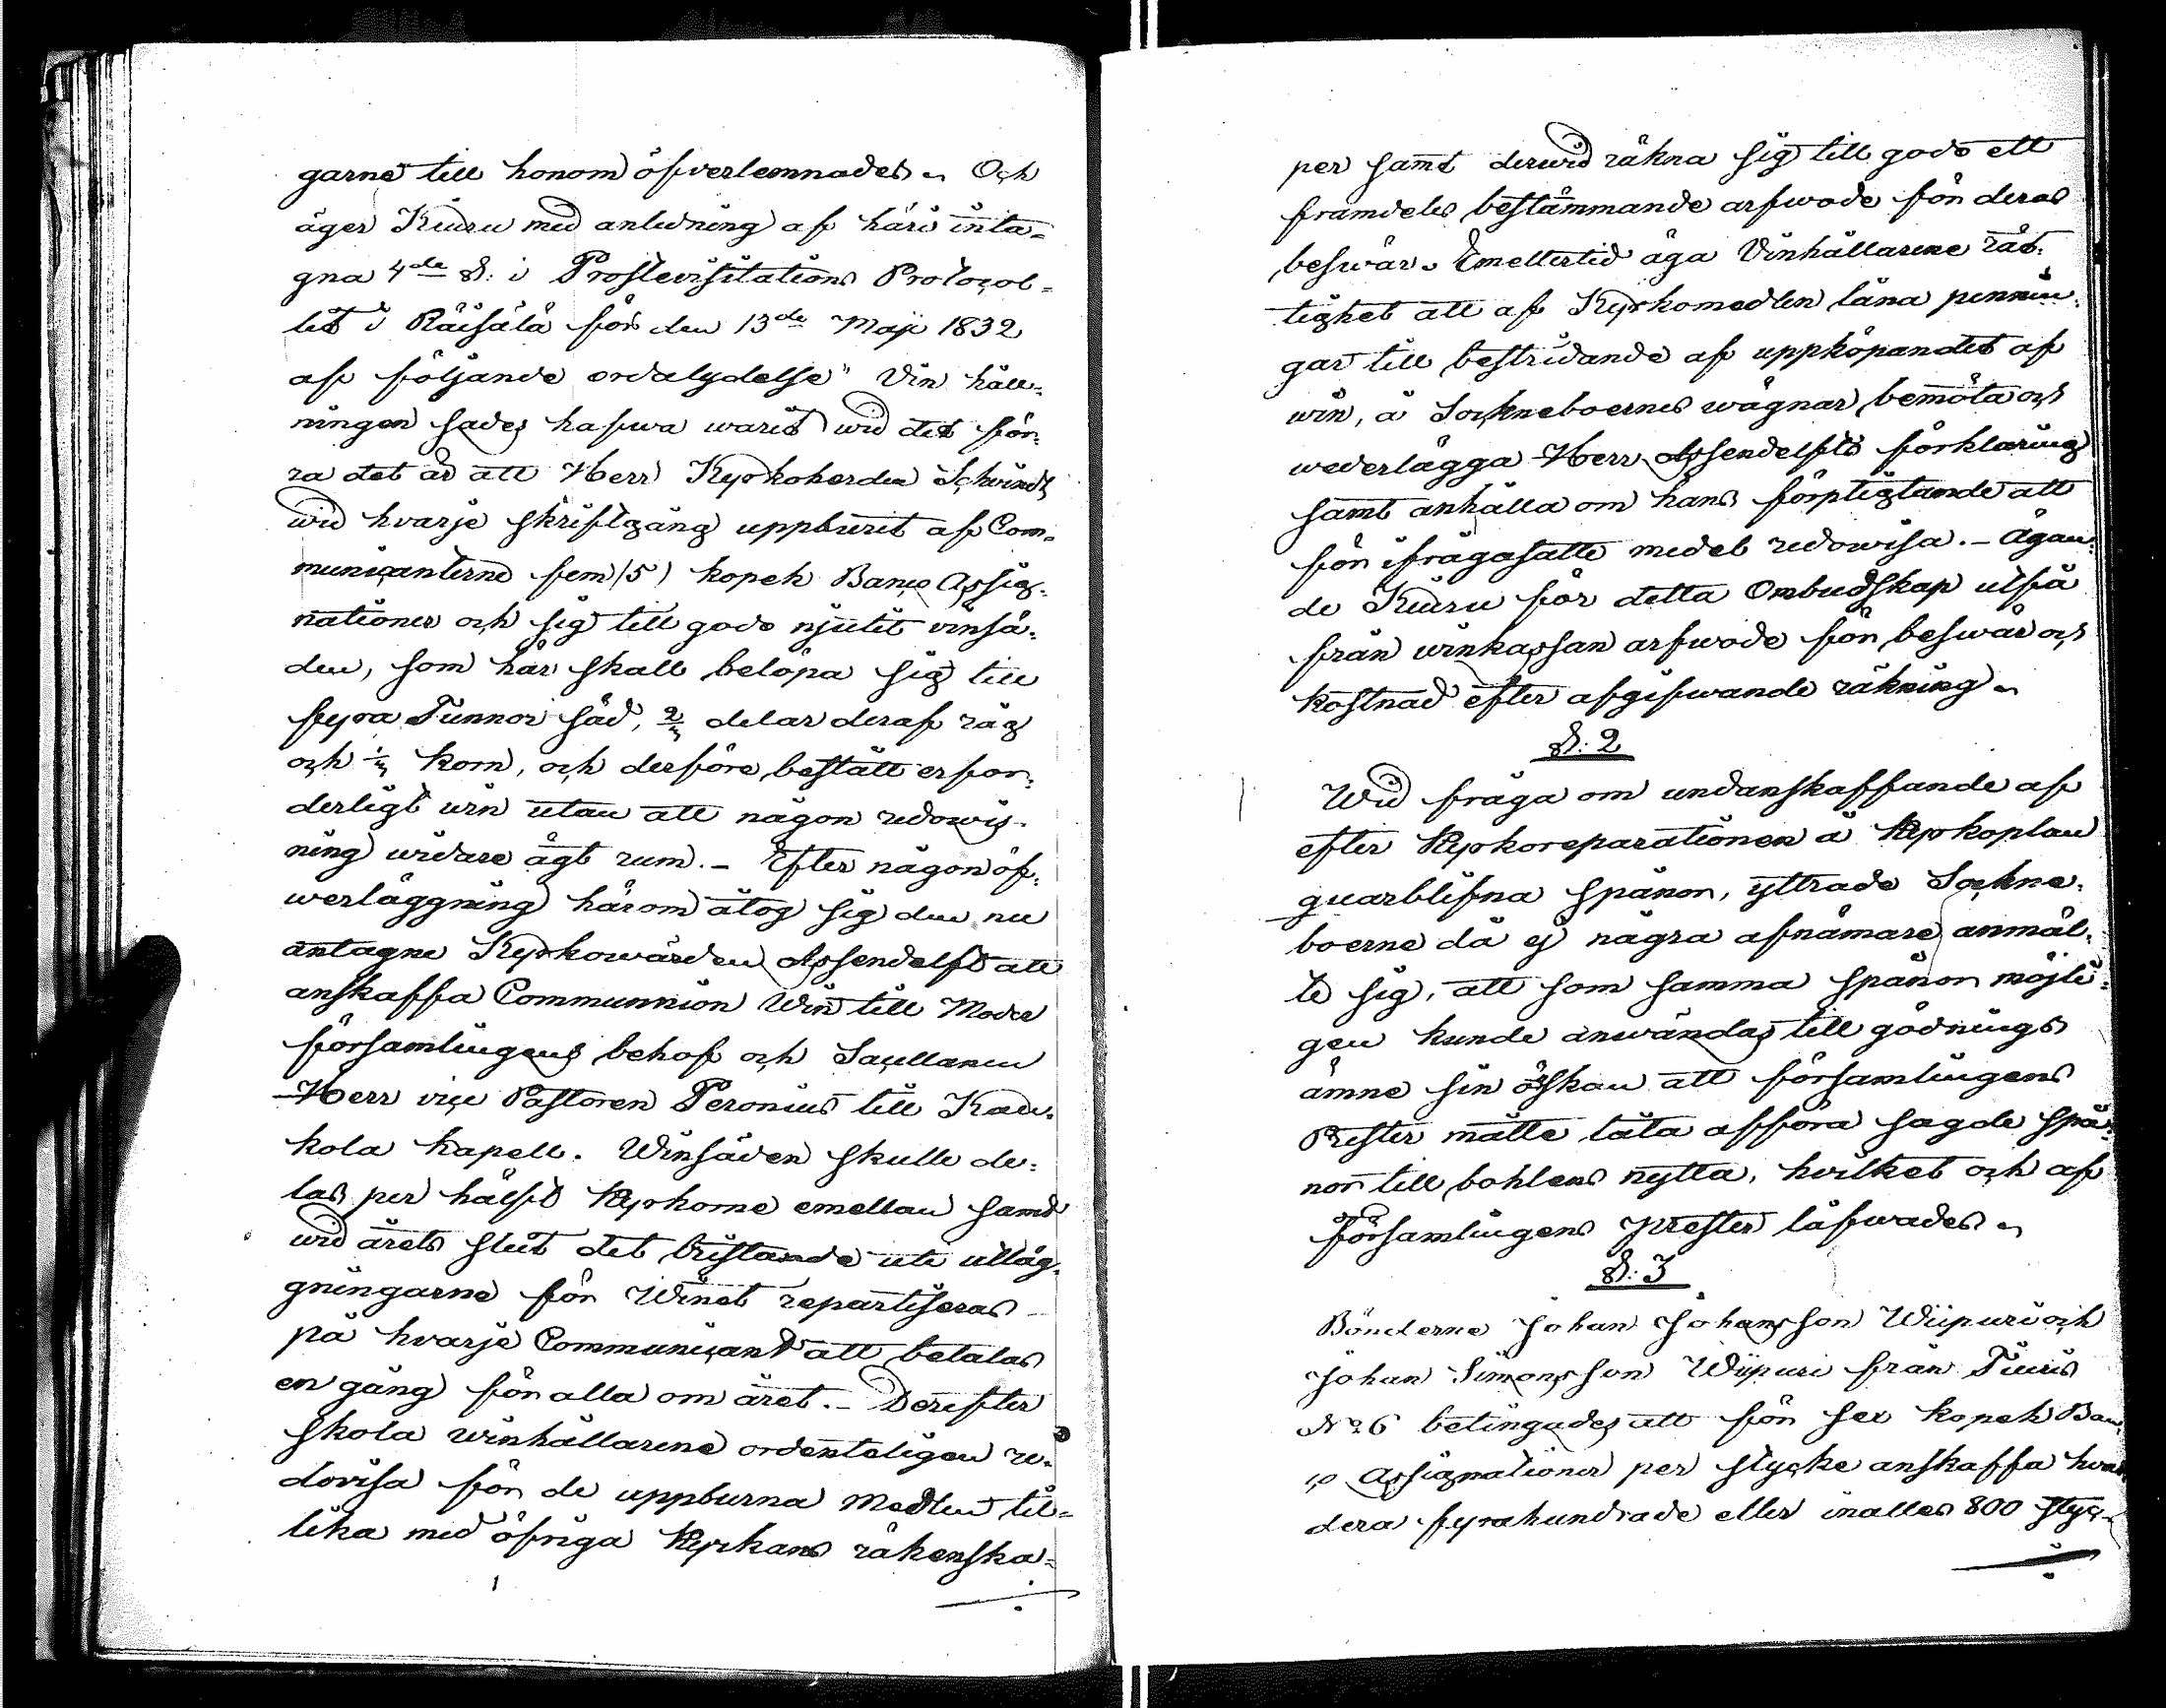 garne till honom öfverlemnades. Och
äger Kiuru med anledning af häri inta-
gna 4de §: i Prostevisitations Protocol-
let i Räisälä för den 13de Maji 1832
af följande ordalydelse" Vin håll-
ningen sades hafwa warit wid det för-
ra det är att Herr Kyrkoherden Schwindt
wid hvarje skriftgång uppburit af Com-
municanterne fem (5) kopek Banco Assig-
nationer och sig till godo njutit vinsä-
den, som här skall belöpa sig till
fyra Tunnor säd, 2/3 delar deraf råg
och 1/3 korn, och derföre bestått erfor-
derligt win utan att någon redowis-
ning widare ägt rum. - Efter någon öf-
werläggning härom åtog sig den nu
antagne Kyrkowärden Assendelft att
anskaffa Communnion Win till Moder
församlingens behof och Sacellanen
Herr vice Pastoren Peronius till Kau-
kola kapell. Winsäden skulle de-
las per hälft kyrkorne emellan samt
wid årets slut det bristande uti utläg-
gningarne för Winet repartiseras
på hvarje Communicant att betalas
en gång för alla om året. - Derefter
skola winhållarene ordenteligen re-
dovisa för de uppburna medlen til-
lika med öfriga kyrkans räkenska-
per samt derwid räkna sig till godo ett
framdeles bestämmande arfwode för deras
beswär. Emellertid äga Vinhållarene rät-
tighet att af Kyrkomedlen låna pennin-
gar till bestridande af uppköpandet af
win, å Sockneboernes wägnar bemöta och
wederlägga Herr Assendelfts förklaring
samt anhålla om hans förpligtande att
för ifrågasatte medel redowisa. - Ägan-
de Kiuru för detta Ombudskap utfå
från winkassan arfwode för beswär och
kostnad efter afgifwande räkning.
§: 2
Wid fråga om undanskaffande af
efter kyrkoreparationen å kyrkoplan
quarblifna spånor, yttrade Sockne-
boerne då ej några afnämare anmäl-
te sig, att som samma spånor möjli-
gen kunde anwändas till gödnings
ämne sin önskan att församlingens
Prester måtte låta afföra sagde spå-
nor till bohlens nytta, hvilket och af
församlingens prester låfwades.
§: 3
Bönderne Johan Johansson Wiipuri och
Johan Simonsson Wiipuri från Tiuris
No 6 betingades att för sex kopek Ban-
co Assignationer per stycke anskaffa hvar-
dera fyrahundrade eller inalles 800 styc-